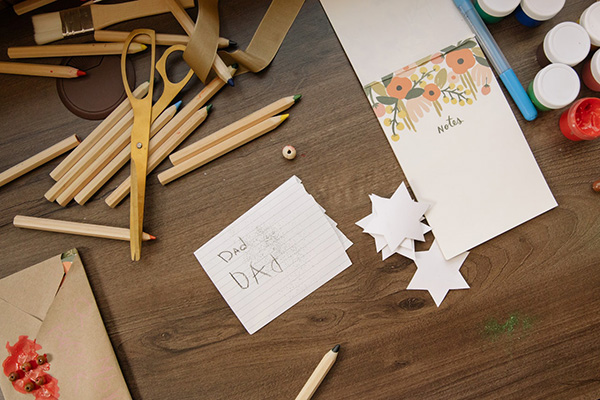 Notes
Dad
DAd